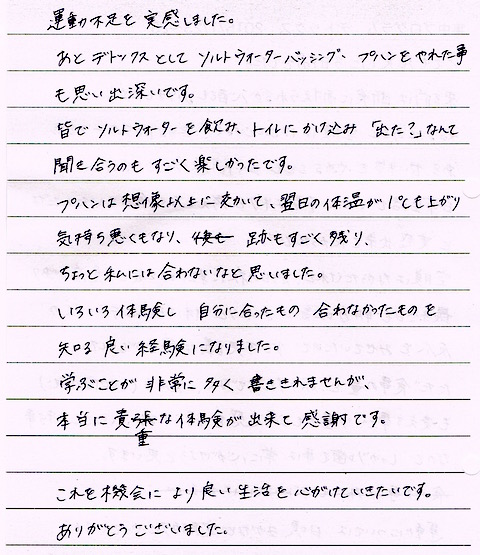 運動不足を実感しました。
あとデトックスとしてソルトウォーターバッシング、プハンをやれた事
も思い出深いです。
皆でソルトウォーターを飲み、トイレにかけ込み「出た?」なんて
聞き合うのもすごく楽しかったです。
プハンは想像以上に効いて、翌日の体温が1°Cも上がり
気持ち悪くもなり、跡もすごく残り、
ちょっと私には合わないなと思いました。
いろいろ体験し 自分に合ったもの 合わなかったものを
知る良い経験になりました。
学ぶことが非常に多く書ききれませんが、
本当に貴重な体験が出来て感謝です。
これを機会により良い生活を心がけていきたいです。
ありがとうございました。